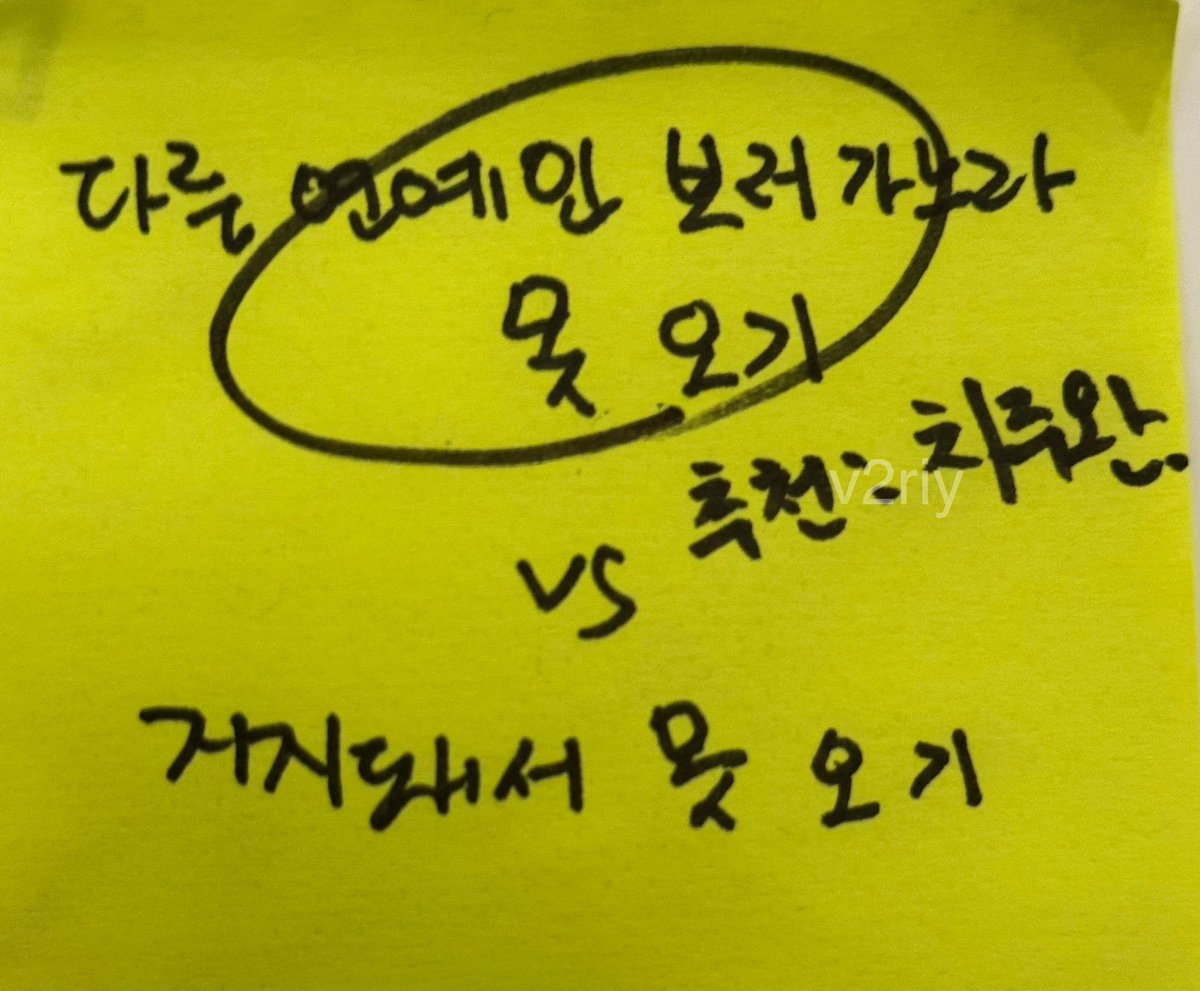 다른 연예인 보러 가느라
못 오기
추천: 차주완.
v2riy
vs
거지돼서 못 오기